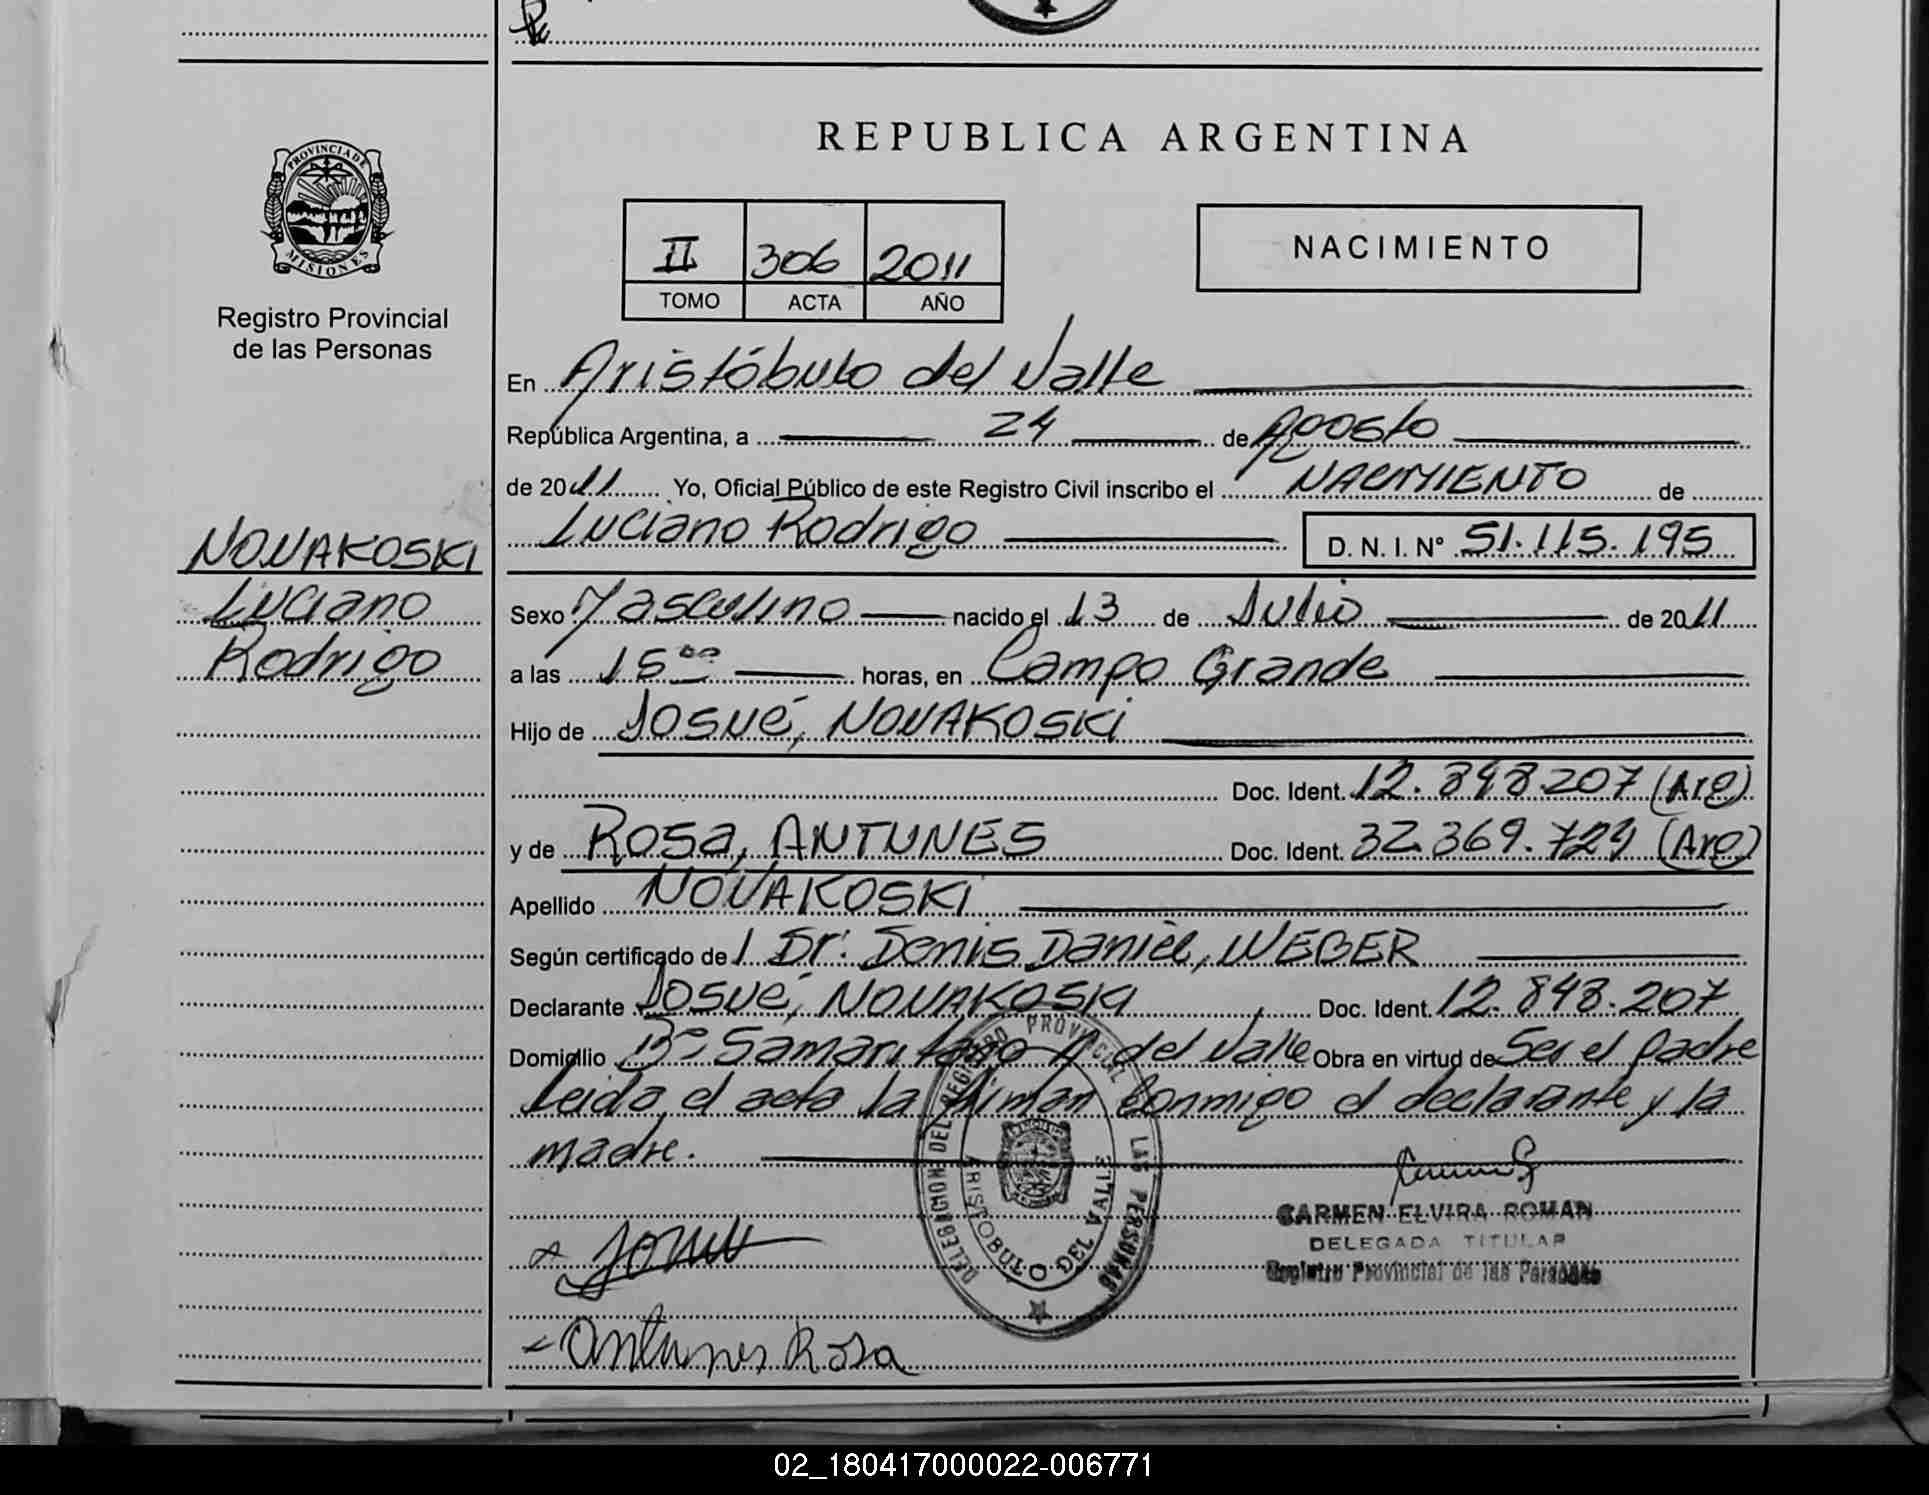 REPUBLICA ARGENTINA
PROVINCIA DE
MISIONES
Registro Provincial
de las Personas
II 306 2011
TOMO ACTA AÑO
NACIMIENTO
NOVAKOSKI
Luciano
Rodrigo
En Aristóbulo del Valle
República Argentina, a 24 de Agosto
de 2011 Yo, Oficial Público de este Registro Civil inscribo el NACIMIENTO de
Luciano Rodrigo D. N. I. Nº 51.115.195
Sexo Masculino nacido el 13 de Julio de 2011
a las 15 00 horas, en Campo Grande
Hijo de Josué, NOVAKOSKI
Doc. Ident. 12.848.207 (Arg)
y de Rosa, ANTUNES Doc. Ident. 32.369.724 (Arg)
Apellido NOVAKOSKI
Según certificado de / Dr. Denis Daniel, WEBER
Declarante Josué, NOVAKOSKI Doc. Ident. 12.848.207
Domicilio Bº Samaritano A. del Valle Obra en virtud de Ser el padre
Leida el acta la firman conmigo el declarante y la
madre.
DELEGACION DEL REGISTRO PROVINCIAL DE LAS PERSONAS
ARISTOBULO DEL VALLE
CARMEN ELVIRA ROMAN
DELEGADA TITULAR
Registro Provincial de las Personas
Antunes Rosa
02_180417000022-006771